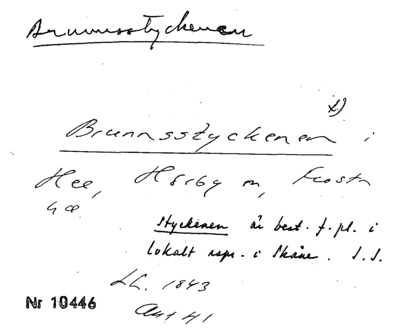 Brunnsstyckenen
x)
Brunnsstyckenen i
Hee, Hörby sn, Frosta
hd
styckenen är best. f. pl. i
lokalt uspr. i Skåne. S.S.
LL. 1843
Akt 41
Nr 10446